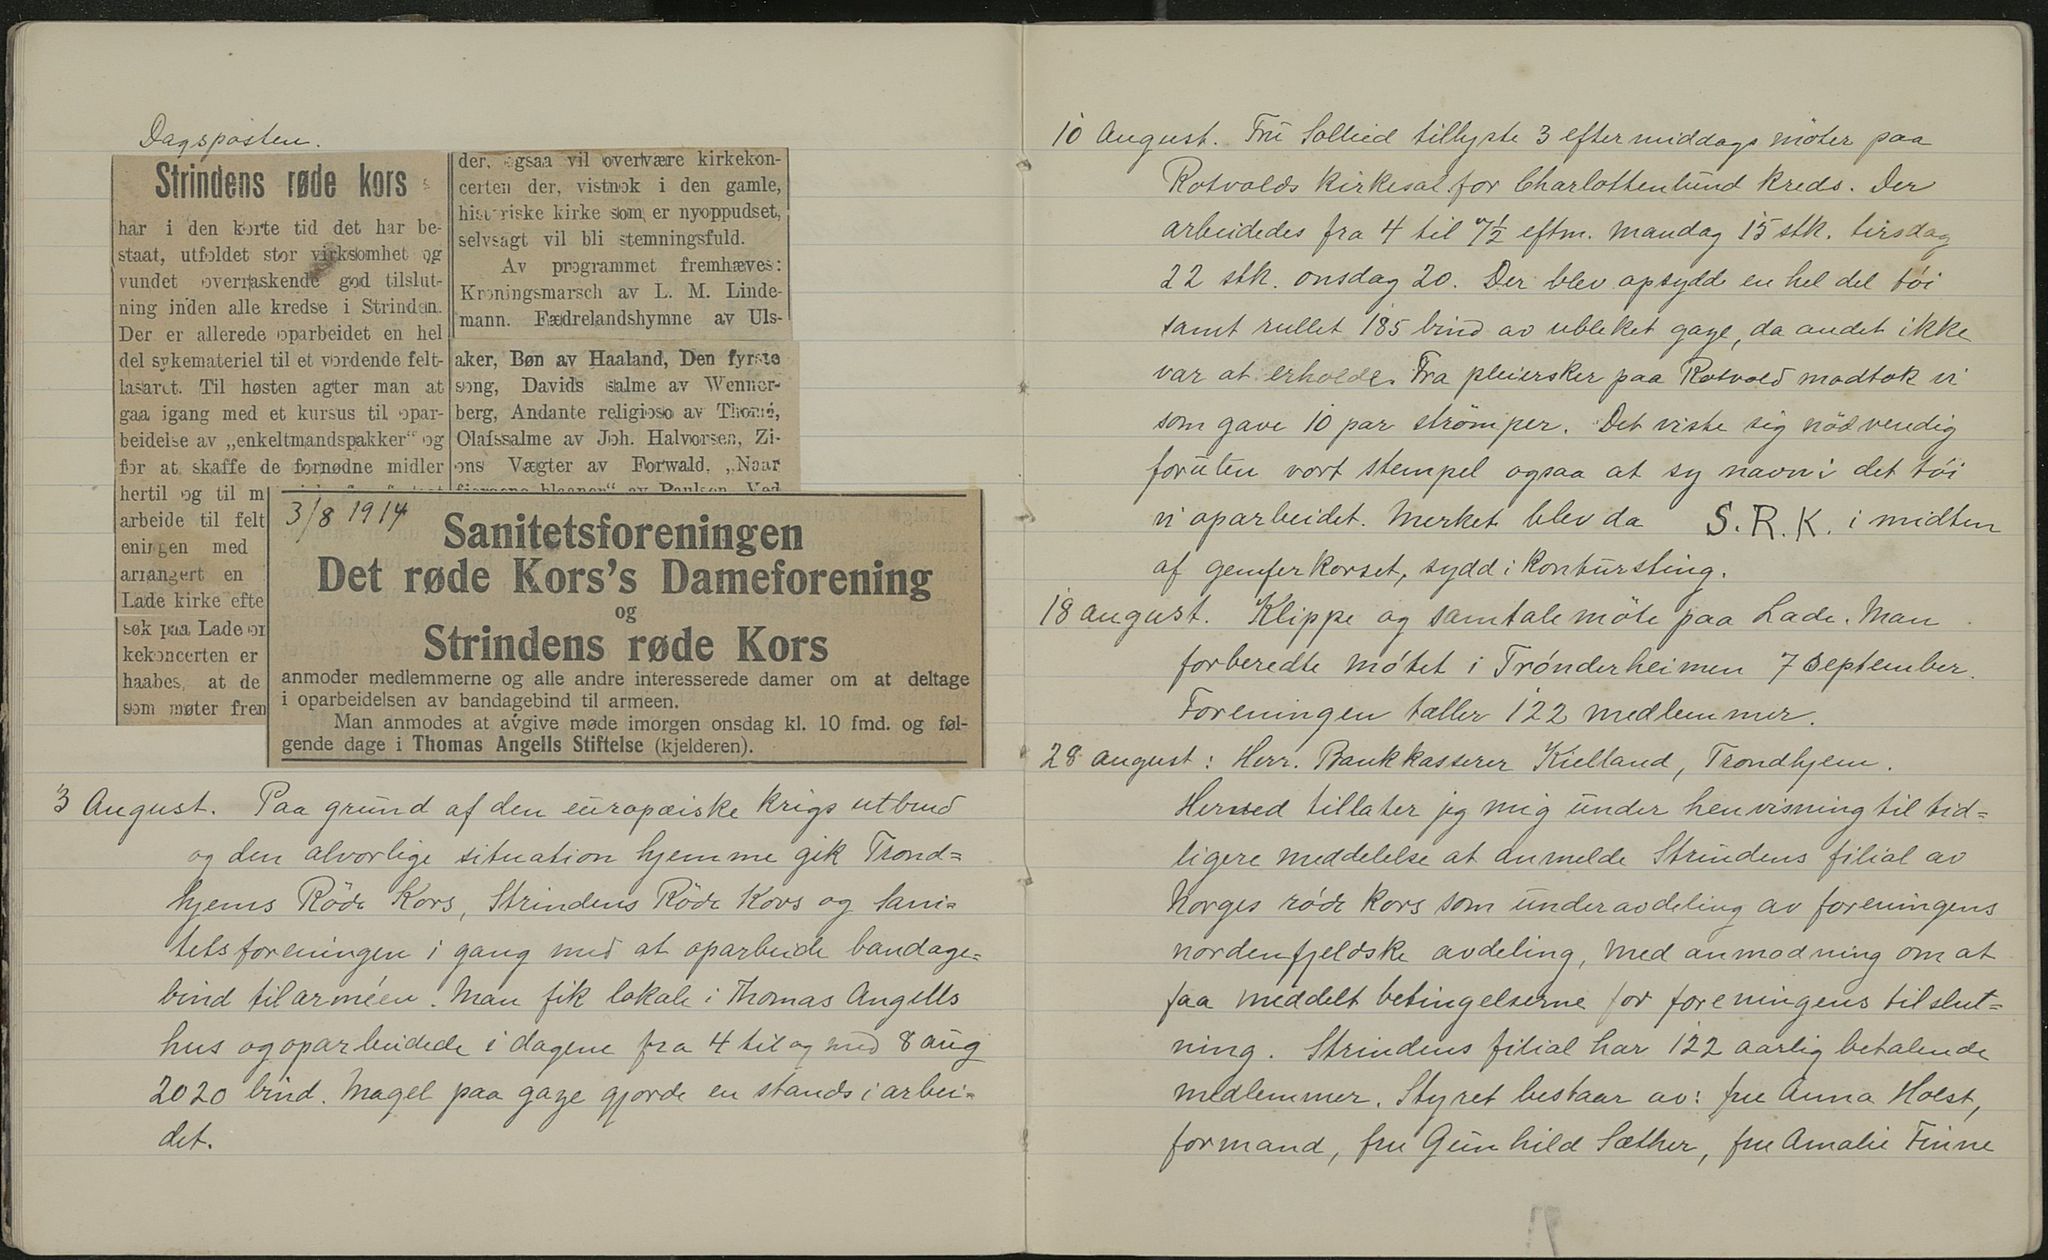 Dagsposten.
Strindens røde kors
har i den korte tid det har be-
staat, utfoldet stor virksomhet og
vundet overraskende god tilslut-
ning inden alle kredse i Strinden.
Der er allerede oparbeidet en hel
del sykemateriel til et vordende felt-
lasaret. Til høsten agter man at
gaa igang med et kursus til opar-
beidelse av „enkeltmandspakker“ og
for at skaffe de fornødne midler
hertil og til m
arbeide til felt
eningen med
arrangert en
Lade kirke efte
søk paa Lade or
kekoncerten er
haabes, at de
som møter frem
der, ogsaa vil overvære kirkekon-
certen der, vistnok i den gamle,
historiske kirke som er nyoppudset,
selvsagt vil bli stemningsfuld.
Av programmet fremhæves:
Kroningsmarsch av L. M. Linde-
mann. Fædrelandshymne av Uls-
aker, Bøn av Haaland, Den fyrste
song, Davids salme av Wenner-
berg, Andante religioso av Thomé,
Olafssalme av Joh. Halvorsen, Zi-
ons Vægter av Forwald, „Naar
fjordene blaaner“ av Paulsen. Ved
3/8 1914
Sanitetsforeningen
Det røde Kors's Dameforening
og
Strindens røde Kors
anmoder medlemmerne og alle andre interesserede damer om at deltage
i oparbeidelsen av bandagebind til armeen.
Man anmodes at avgive møde imorgen onsdag kl. 10 fmd. og føl-
gende dage i Thomas Angells Stiftelse (kjelderen).
3 August. Paa grund af den europæiske krigs utbrud
og den alvorlige situation hjemme gik Trond=
hjems Röde Kors, Strindens Röde Kors og Sani=
tetsforeningen i gang med at oparbeide bandage=
bind til arméen. Man fik lokale i Thomas Angells
hus og oparbeidede i dagene fra 4 til og med 8 aug
2020 bind. Magel paa gaze gjorde en stands i arbei=
det.
10 August. Fru Sollied tillyste 3 eftermiddags möter paa
Rotvolds kirkesal for Charlottenlund kreds. Der
arbeidedes fra 4 til 7½ eftm. mandag 15 stk. tirsdag
22 stk. onsdag 20. Der blev opsydd en hel del töi
samt rullet 185 bind av ubleket gaze, da andet ikke
var at erholde. Fra pleiersker paa Rotvold modtok vi
som gave 10 par strömper. Det viste sig nödvendig
foruten vort stempel ogsaa at sy navn i det töi
vi oparbeidet. Merket blev da S.R.K. i midten
af genferkorset, sydd i kontursting.
18 august. Klippe og samtale möte paa Lade. Man
forberedte mötet i Trönderheimen 7 September.
Foreningen tæller 122 medlemmer.
28 august: Herr. Bankkasserer Kielland, Trondhjem.
Herved tillater jeg mig under henvisning til tid=
ligere meddelelse at anmelde Strindens filial av
Norges røde kors som underavdeling av foreningens
nordenfjeldske avdeling, med anmodning om at
faa meddelt betingelserne for foreningens tilslut=
ning. Strindens filial har 122 aarlig betalende
medlemmer. Styret bestaar av: fru Anna Holst,
formand, fru Gunhild Sæther, fru Amalie Finne